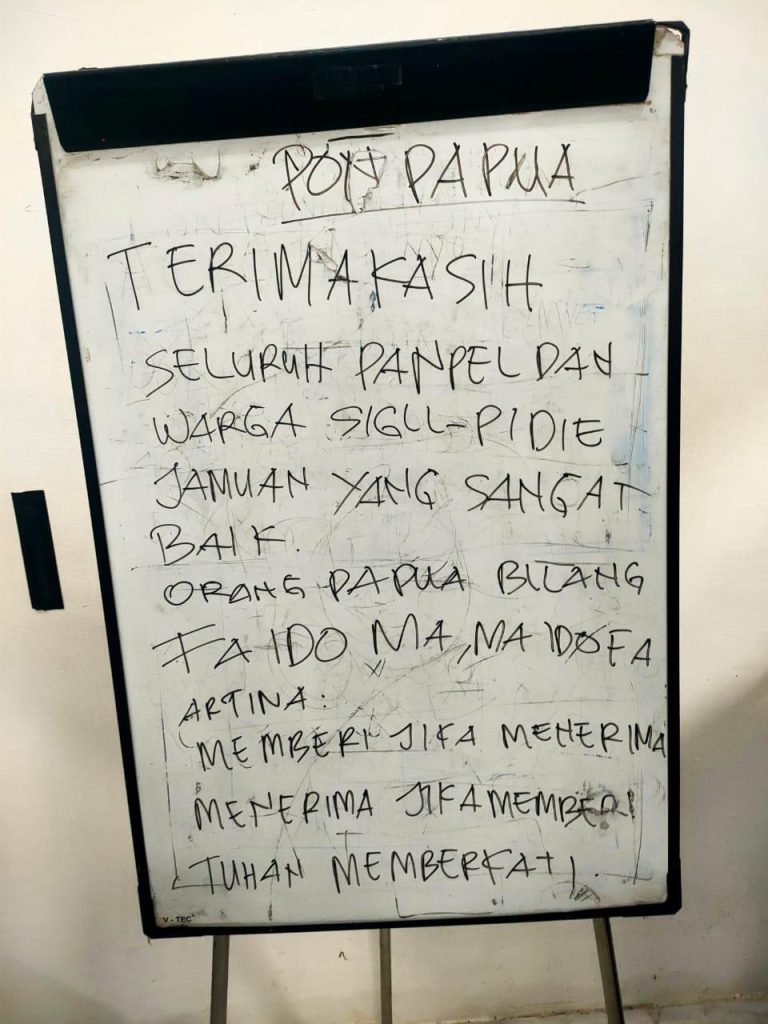 PON PAPUA
TERIMAKASIH
SELURUH PANPEL DAN
WARGA SIGLI-PIDIE
JAMUAN YANG SANGAT
BAIK.
ORANG PAPUA BILANG
FA IDO MA, MA IDO FA
ARTINA:
MEMBERI JIKA MENERIMA
MENERIMA JIKA MEMBERI
TUHAN MEMBERKATI.
V-TEC